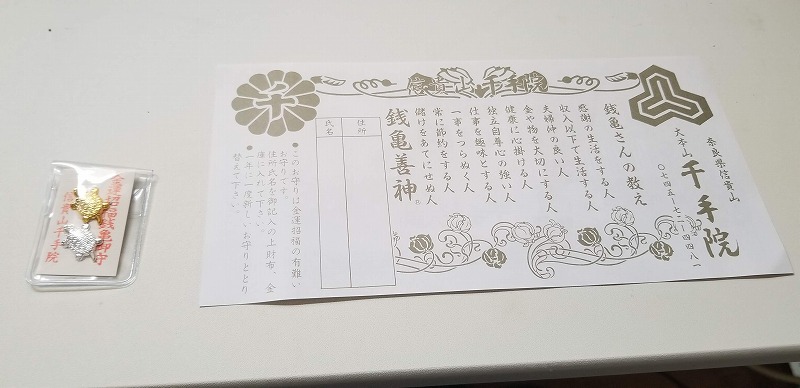 信貴山千手院
奈良県信貴山
大本山 千手院
〇七四五-七二-四四八一
銭亀さんの教え
感謝の生活をする人
収入以下で生活する人
夫婦仲の良い人
金や物を大切にする人
健康に心掛ける人
独立自尊心の強い人
仕事を趣味とする人
一事をつらぬく人
常に節約をする人
儲けをあてにせぬ人
銭亀善神
住所
氏名
●このお守りは金運招福の有難い
お守りです。
住所氏名を御記入の上財布、金
庫に入れて下さい。
●一年に一度新しいお守りととり
替えて下さい。
金運招福銭亀御守
信貴山千手院